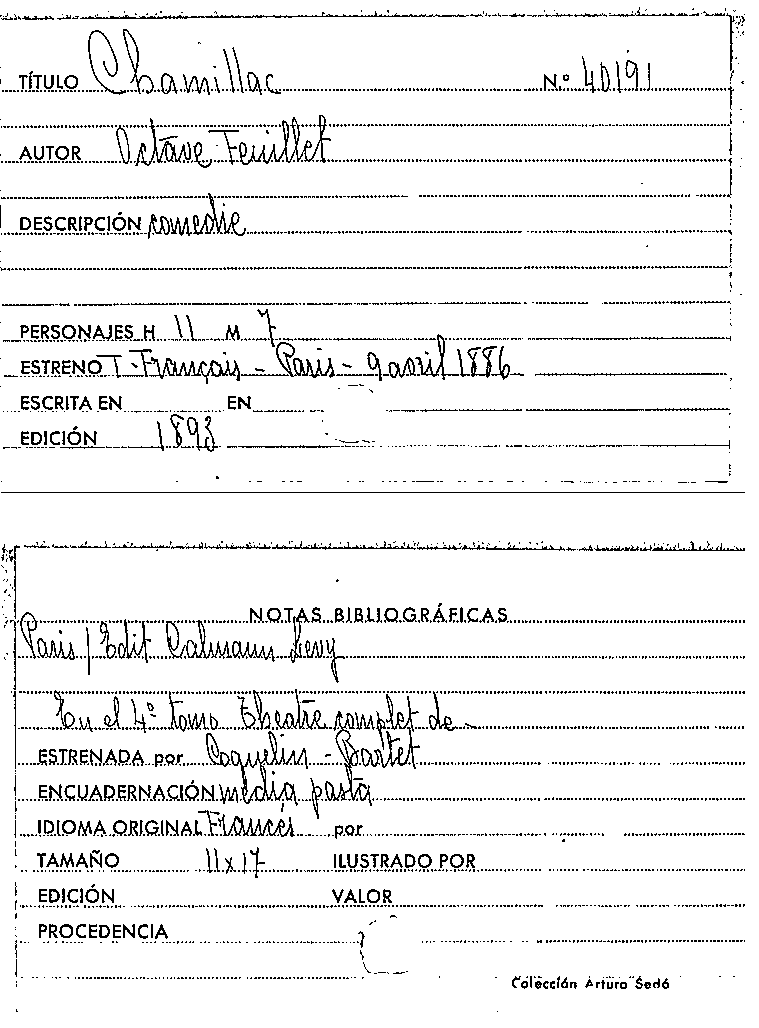 TÍTULO Chamillac N.º 40191
AUTOR Octave Feuillet
DESCRIPCIÓN comedie
PERSONAJES H 11 M 7
ESTRENO T. Français - Paris - 9 avril 1886
ESCRITA EN EN
EDICIÓN 1893
NOTAS BIBLIOGRÁFICAS
Paris / Edit Calmann Levy
En el 4º tomo Theatre complet de -
ESTRENADA por Coquelin - Bartet
ENCUADERNACIÓN media pasta
IDIOMA ORIGINAL Frances por
TAMAÑO 11 x 17 ILUSTRADO POR
EDICIÓN VALOR
PROCEDENCIA
Colección Arturo Sedó